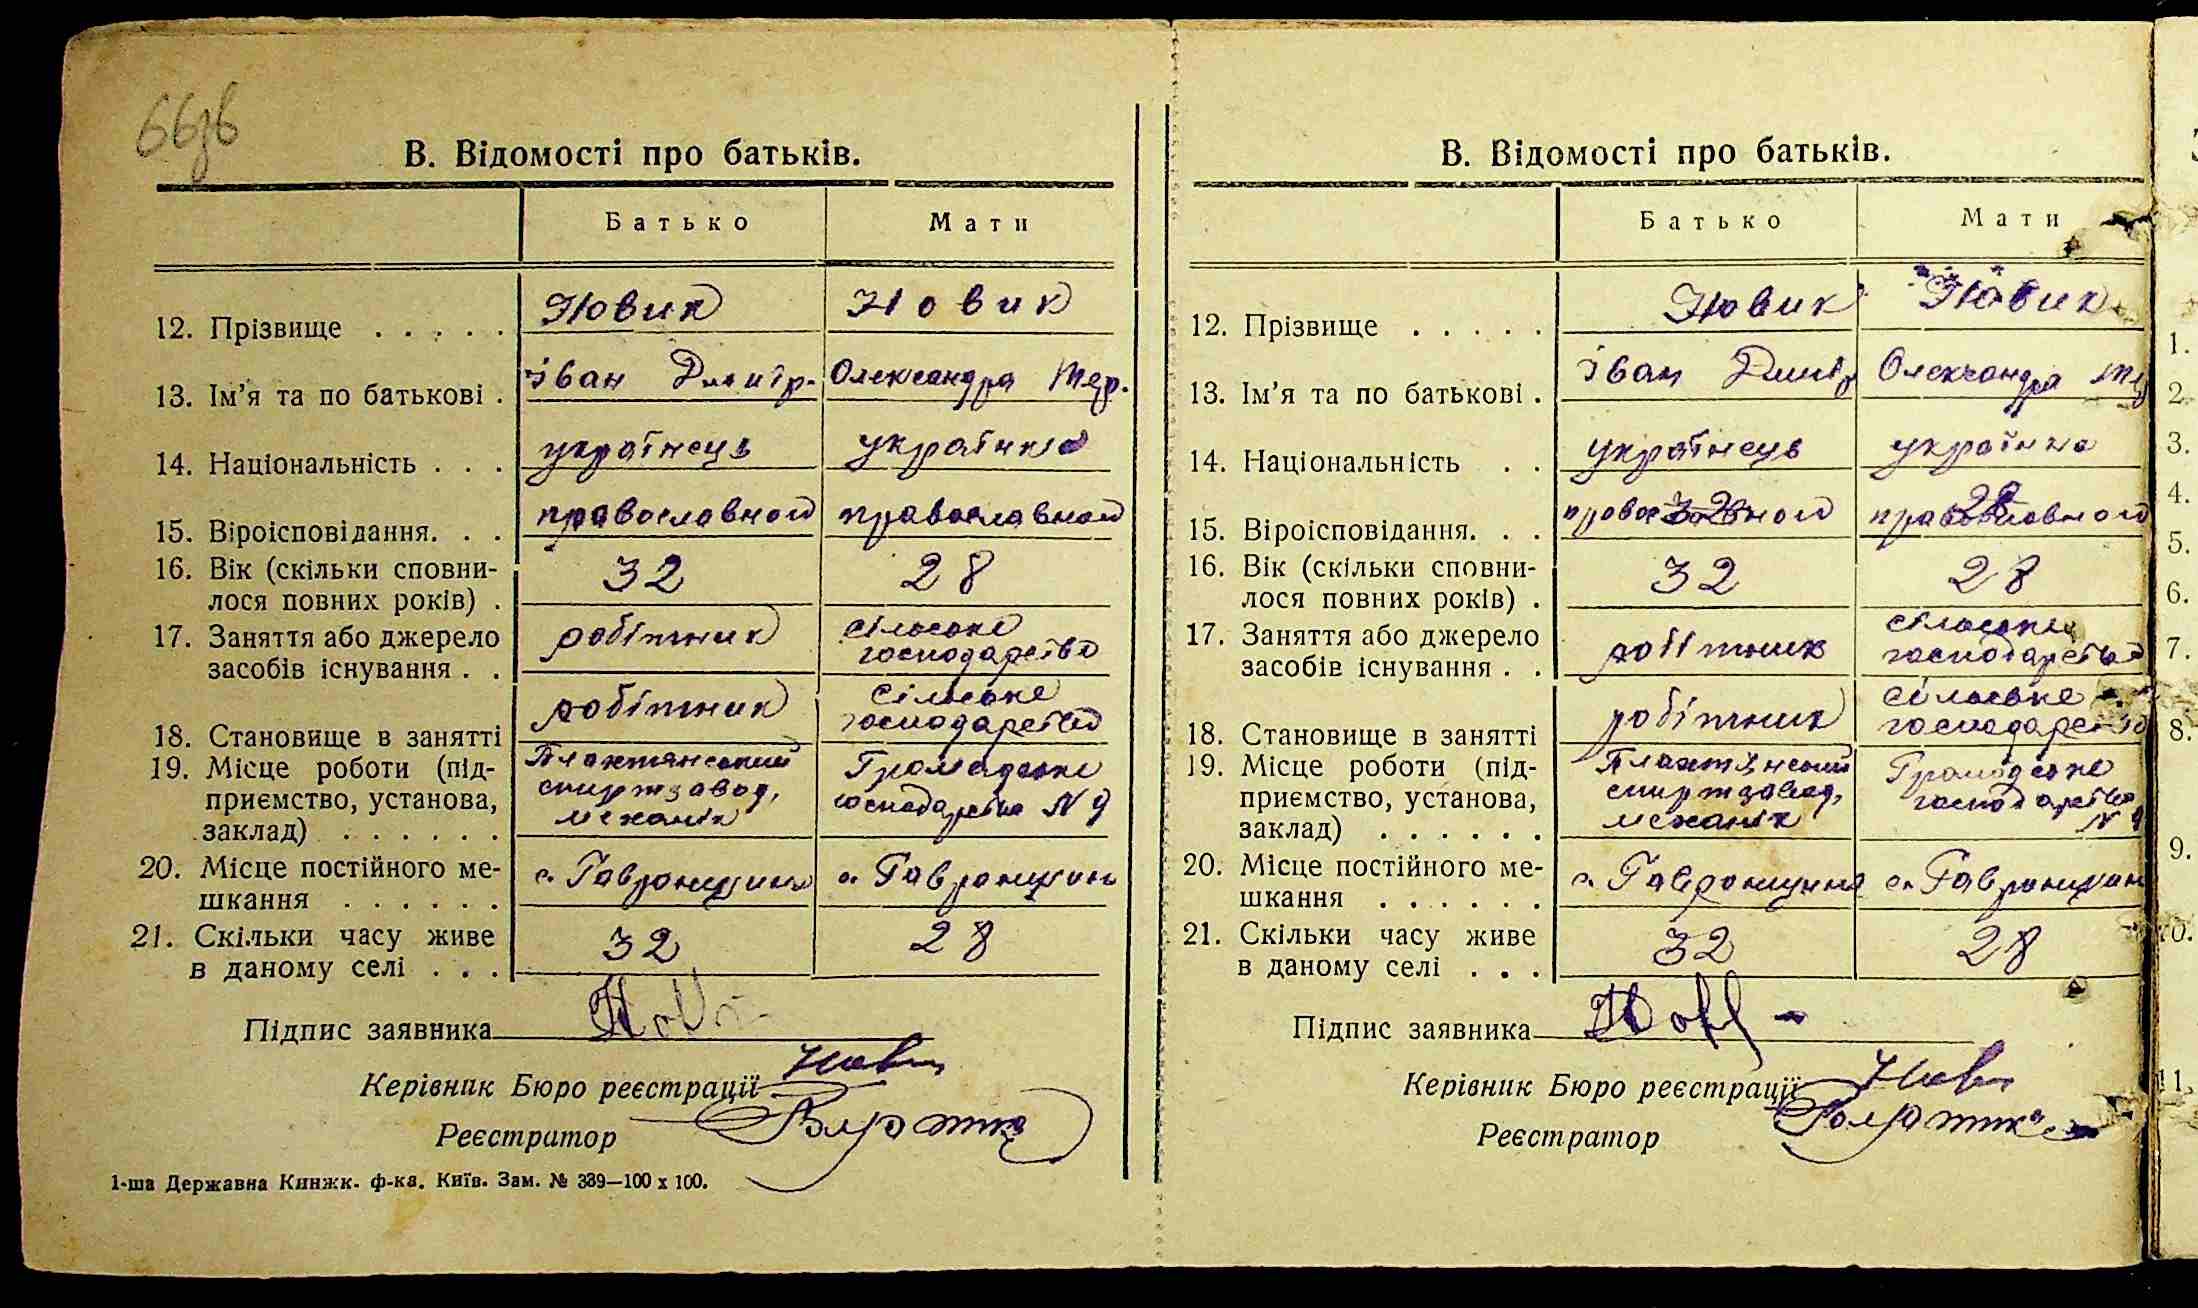 66зв
В. Відомості про батьків.
Батько Мати
12. Прізвище . . . . . Новик Новик
13. Ім’я та по батькові . Іван Дмитр. Олександра Тер.
14. Національність . . . українець українка
15. Віроісповідання. . . православного православного
16. Вік (скільки сповни-
лося повних років) . 32 28
17. Заняття або джерело робітник сільське
засобів існування . . господарство
18. Становище в занятті робітник сільське
господарство
19. Місце роботи (під- Плахтянський Громадське
приємство, установа, спиртзавод, господарство N 9
заклад) . . . . . . механік
20. Місце постійного ме- с. Гавронщина с. Гавронщин
шкання . . . . . .
21. Скільки часу живе 32 28
в даному селі . . .
Підпис заявника
Керівник Бюро реєстрації
Реєстратор
1-ша Державна Книжк. ф-ка. Київ. Зам. № 339—100 х 100.
В. Відомості про батьків.
Батько Мати
12. Прізвище . . . . . Новик Новик
13. Ім’я та по батькові . Іван Дмитр Олександра Те
14. Національність . . українець українка
15. Віроісповідання. . . православного православного
16. Вік (скільки сповни-
лося повних років) . 32 28
17. Заняття або джерело робітник сільське
засобів існування . . господарство
18. Становище в занятті робітник сільське
господарство
19. Місце роботи (під- Плахтянський Громадське
приємство, установа, спиртзавод, господарство
заклад) . . . . . . механік N 9
20. Місце постійного ме- с. Гавронщина с. Гавронщин
шкання . . . . . .
21. Скільки часу живе 32 28
в даному селі . . .
Підпис заявника
Керівник Бюро реєстрації
Реєстратор
1.
2.
3.
4.
5.
6.
7.
8.
9.
10.
11.